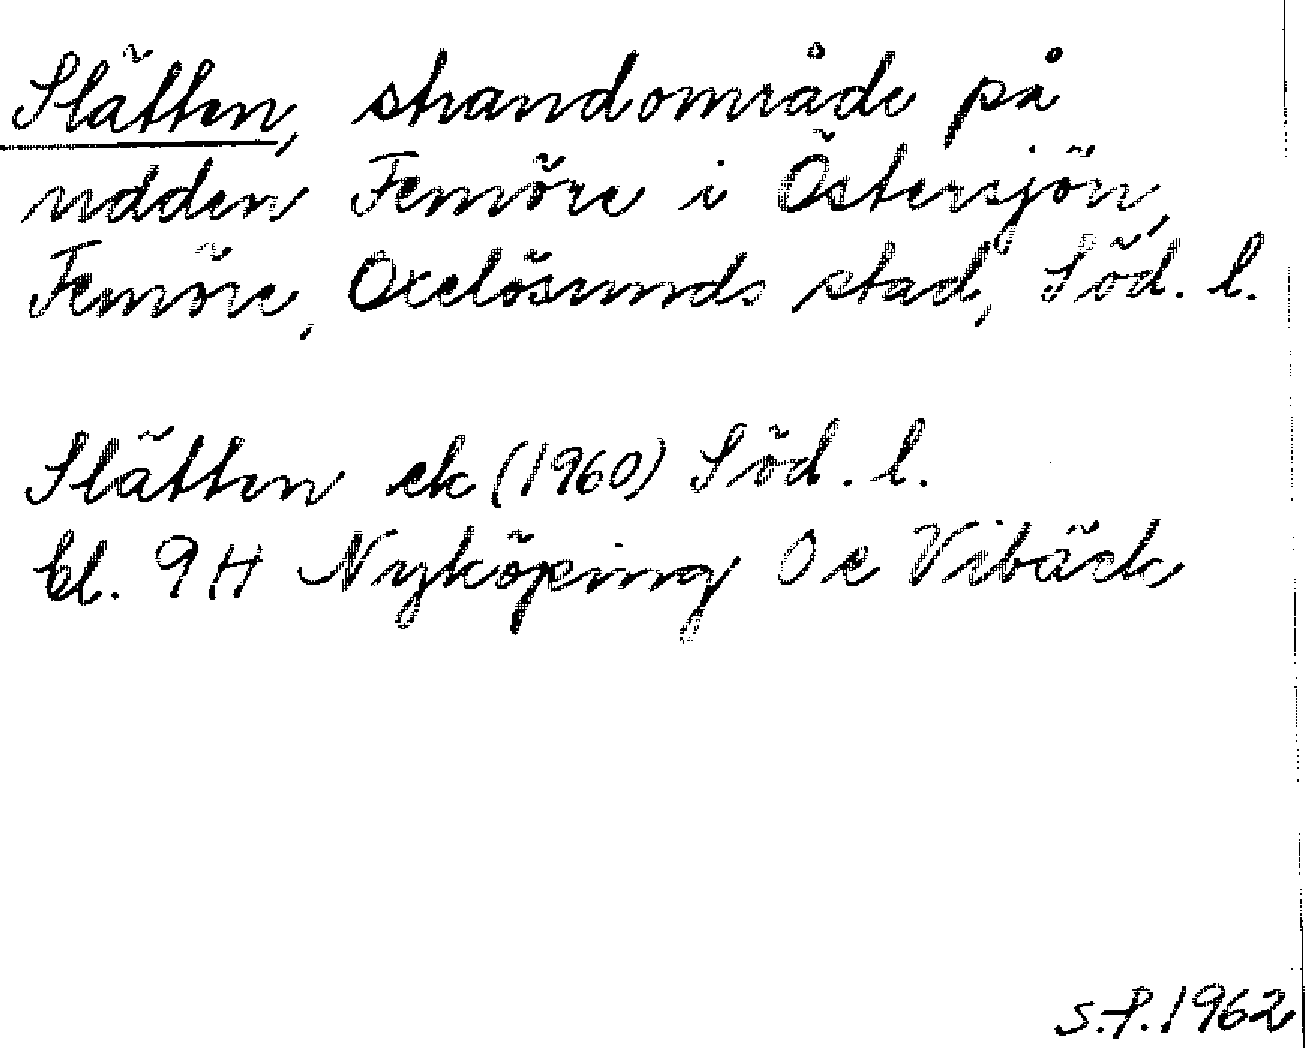 Slätten, strandområde på
udden Femöre i Östersjön,
Femöre, Oxelösunds stad, Söd. l.
Slätten ek (1960) Söd. l.
bl. 9H Nyköping Oc Vibäck
S.P. 1962